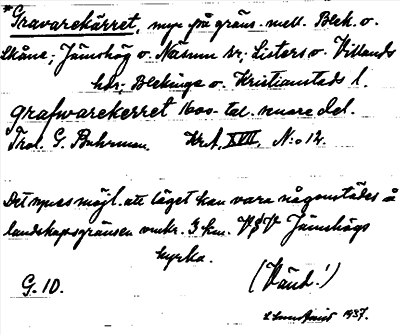 *Gravarekärret, myr på gräns. mell. Blek. o.
Skåne; Jämshög o. Näsum sr; Listers o. Villands
hdr; Blekinge o. Kristianstads l.
grafwarekerret 1600-tal. senare del.
Trol. G. Buhrman. Kr. A. XVII, N:o 12.
Det synes möjl. att läget kan vara någonstädes å
landskapsgränsen omkr. 3 km. VSV Jämshögs
kyrka.
G. 10. (Vänd!)
1937.